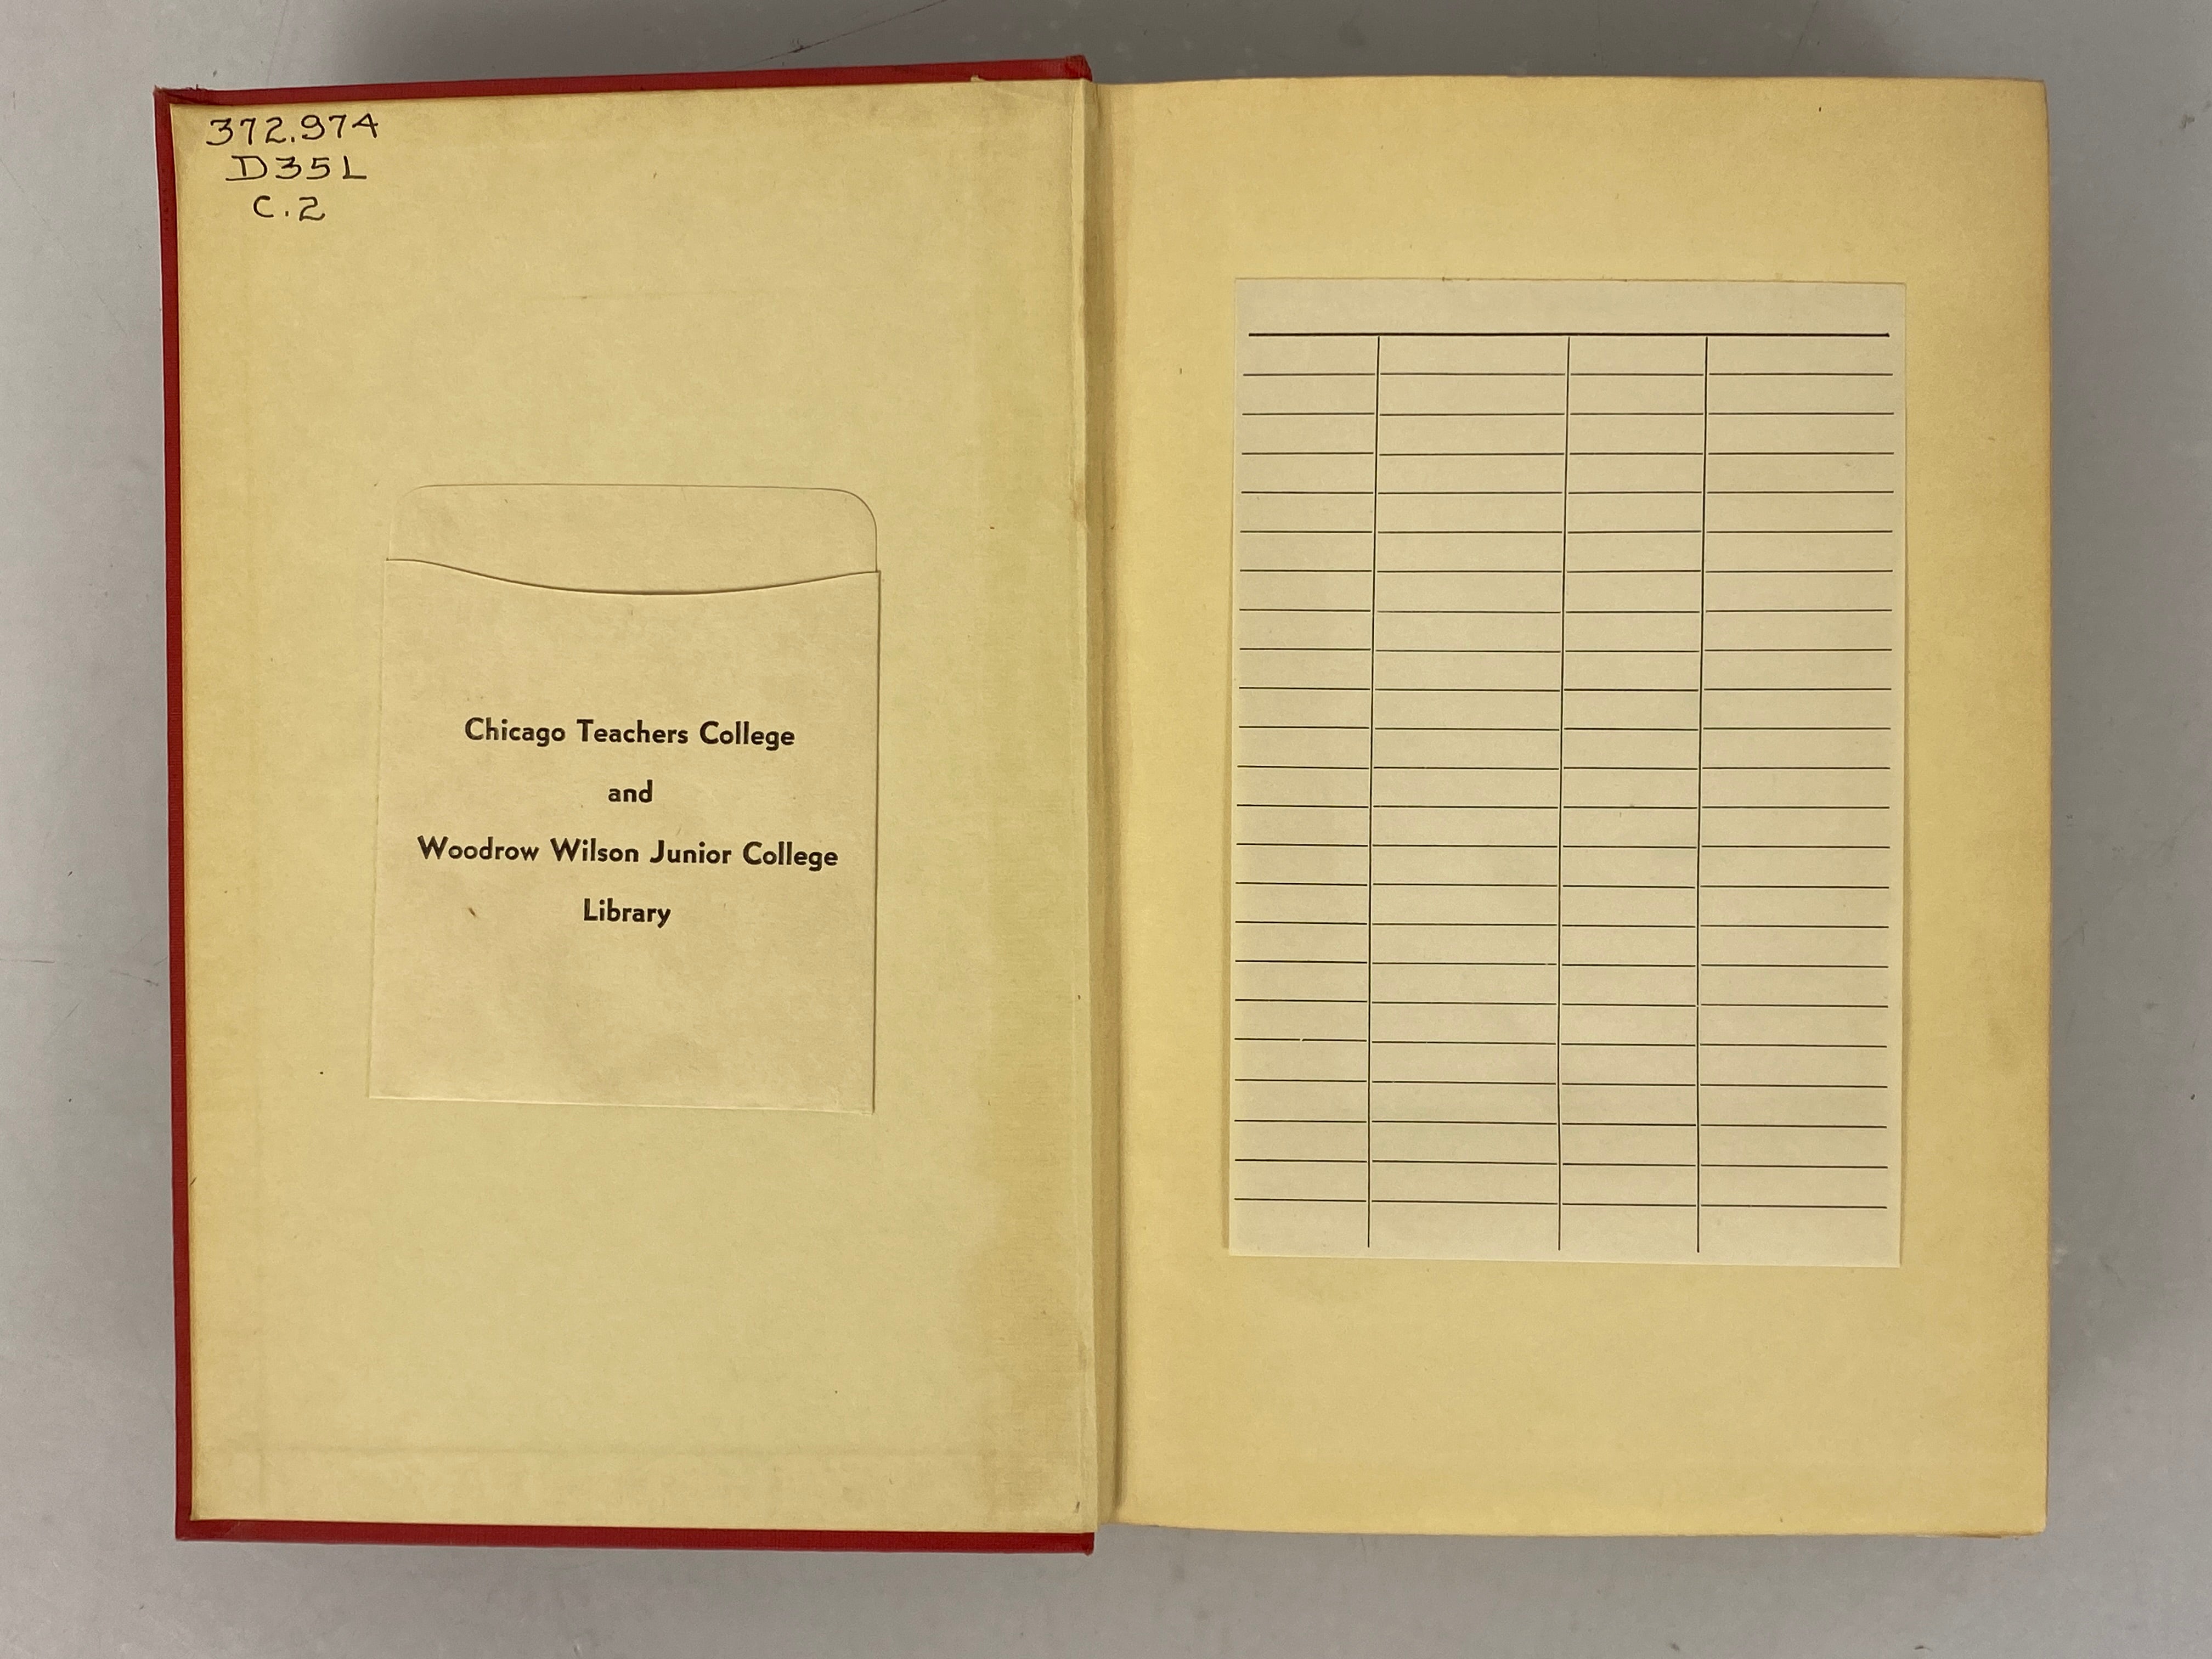 372.974
D35L
C.2
Chicago Teachers College
and
Woodrow Wilson Junior College
Library